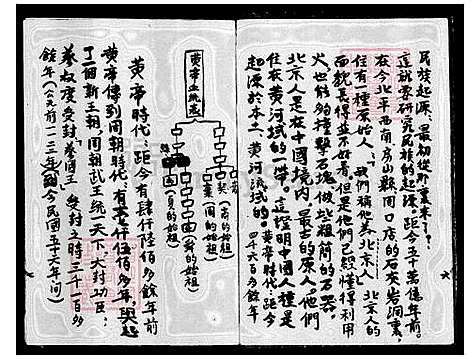 民族起源、最初從那裏來了？
這就要研究民族的起源。距今五十萬億年前。
在今北平西南房山縣周口店的石灰岩洞裏，
住有一種原始人、我們稱他為北京人、北京人的
面貌長得並不好看但是他們已經懂得利用
火也能夠撞擊石塊做出粗簡的石器。
北京人是在中國境內、最古的原人。他們
住在黃河流域的一帶。這證明中國人種是
起源於本土、黃河流域的。黃帝時代、距今
四千六百多餘年
黃帝血統表
契(商的始祖)
棄(周的始祖)
舜的始祖)
夏的始祖)
黃帝時代：距今有肆仟陸佰多餘年前
黃帝傳到周朝時代、有壹仟伍佰多年，興起
了一個新王朝、周朝武王統一天下、大封功臣：
蔡叔度受封蔡國王、受封之時三千一百多
餘年(公元前一一二三年到今民國五十六年間)